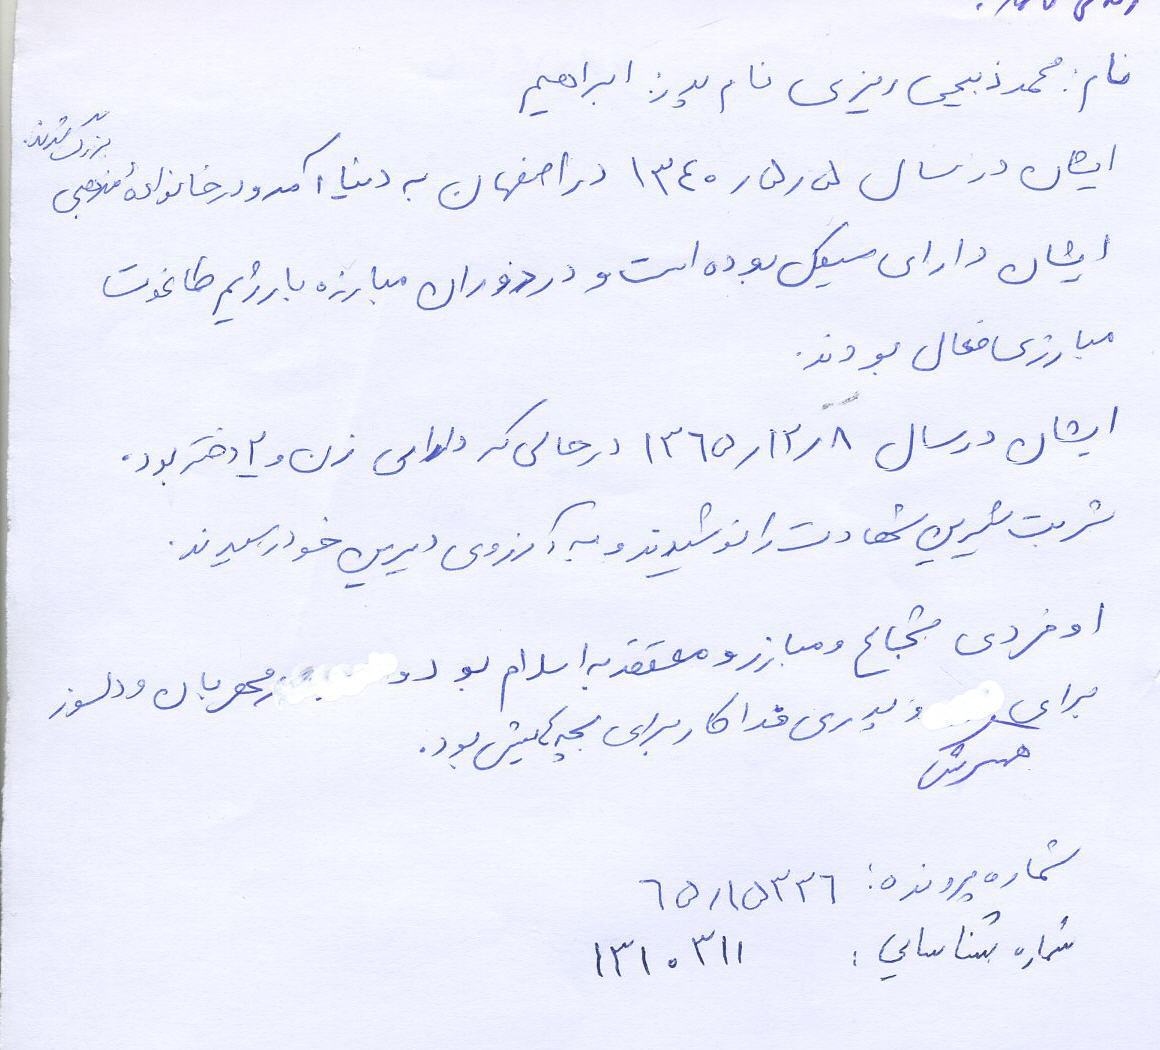 نام: محمد ذبیحی ریزی نام پدر: ابراهیم
ایشان در سال ۱۳٤۰٫۵٫۵ در اصفهان به دنیا آمد و در خانوادهٔ مذهبی بزرگ شدند.
ایشان دارای سیکل بوده است و در دوران مبارزه با رژیم طاغوت
مبارزی فعال بودند.
ایشان در سال ۱۳٦۵٫۱۲٫۸ در حالی که دارای زن و ۲ دختر بود.
شربت شیرین شهادت را نوشیدند و به آرزوی دیرین خود رسیدند.
او فردی شجاع و مبارز و معتقد به اسلام بود و مهربان و دلسوز
برای همسرش و پدری فداکار برای بچه‌هایش بود.
شماره پرونده: ٦۵٫۱۵۳۳٦
شماره شناسایی: ۱۳۱۰۳۱۱